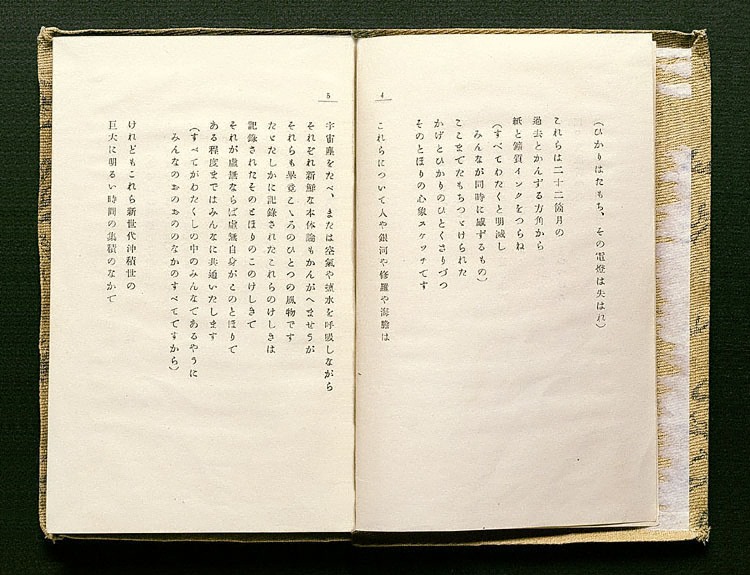 4
(ひかりはたもち、その電燈は失はれ)
これらは二十二箇月の
過去とかんずる方角から
紙と鑛質インクをつらね
(すべてわたくと明滅し
みんなが同時に感ずるもの)
ここまでたもちつゞけられた
かげとひかりのひとくさりづつ
そのとほりの心象スケツチです
これらについて人や銀河や修羅や海膽は
5
宇宙塵をたべ、または空氣や塩水を呼吸しながら
それぞれ新鮮な本体論もかんがへませうが
それらも畢竟こゝろのひとつの風物です
たゞたしかに記録されたこれらのけしきは
記録されたそのとほりのこのけしきで
それが虚無ならば虚無自身がこのとほりで
ある程度まではみんなに共通いたします
(すべてがわたくしの中のみんなであるやうに
みんなのおのおののなかのすべてですから)
けれどもこれら新世代沖積世の
巨大に明るい時間の集積のなかで